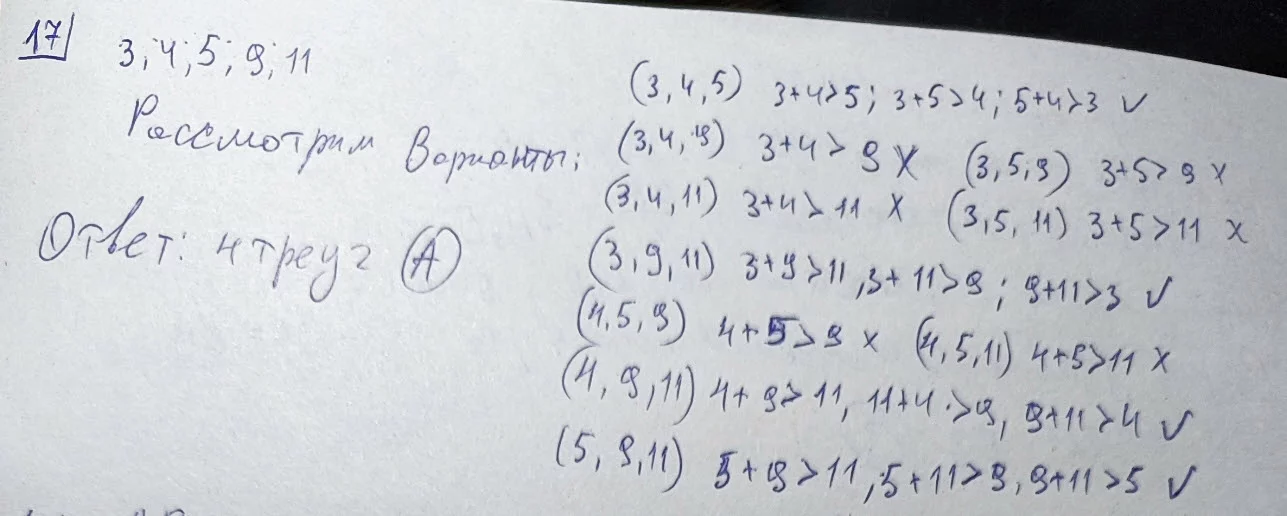 17
3; 4; 5; 9; 11
Рассмотрим варианты:
Ответ: 4 треуг (А)
(3, 4, 5) 3+4>5; 3+5>4; 5+4>3 ✓
(3, 4, 9) 3+4> 9 X (3, 5, 9) 3+5> 9 x
(3, 4, 11) 3+4> 11 x (3, 5, 11) 3+5>11 x
(3, 9, 11) 3+9>11, 3+11>9; 9+11>3 ✓
(4, 5, 9) 4+5>9 x (4, 5, 11) 4+5>11 x
(4, 9, 11) 4+9>11, 11+4>9, 9+11>4 ✓
(5, 9, 11) 5+9>11, 5+11>9, 9+11>5 ✓